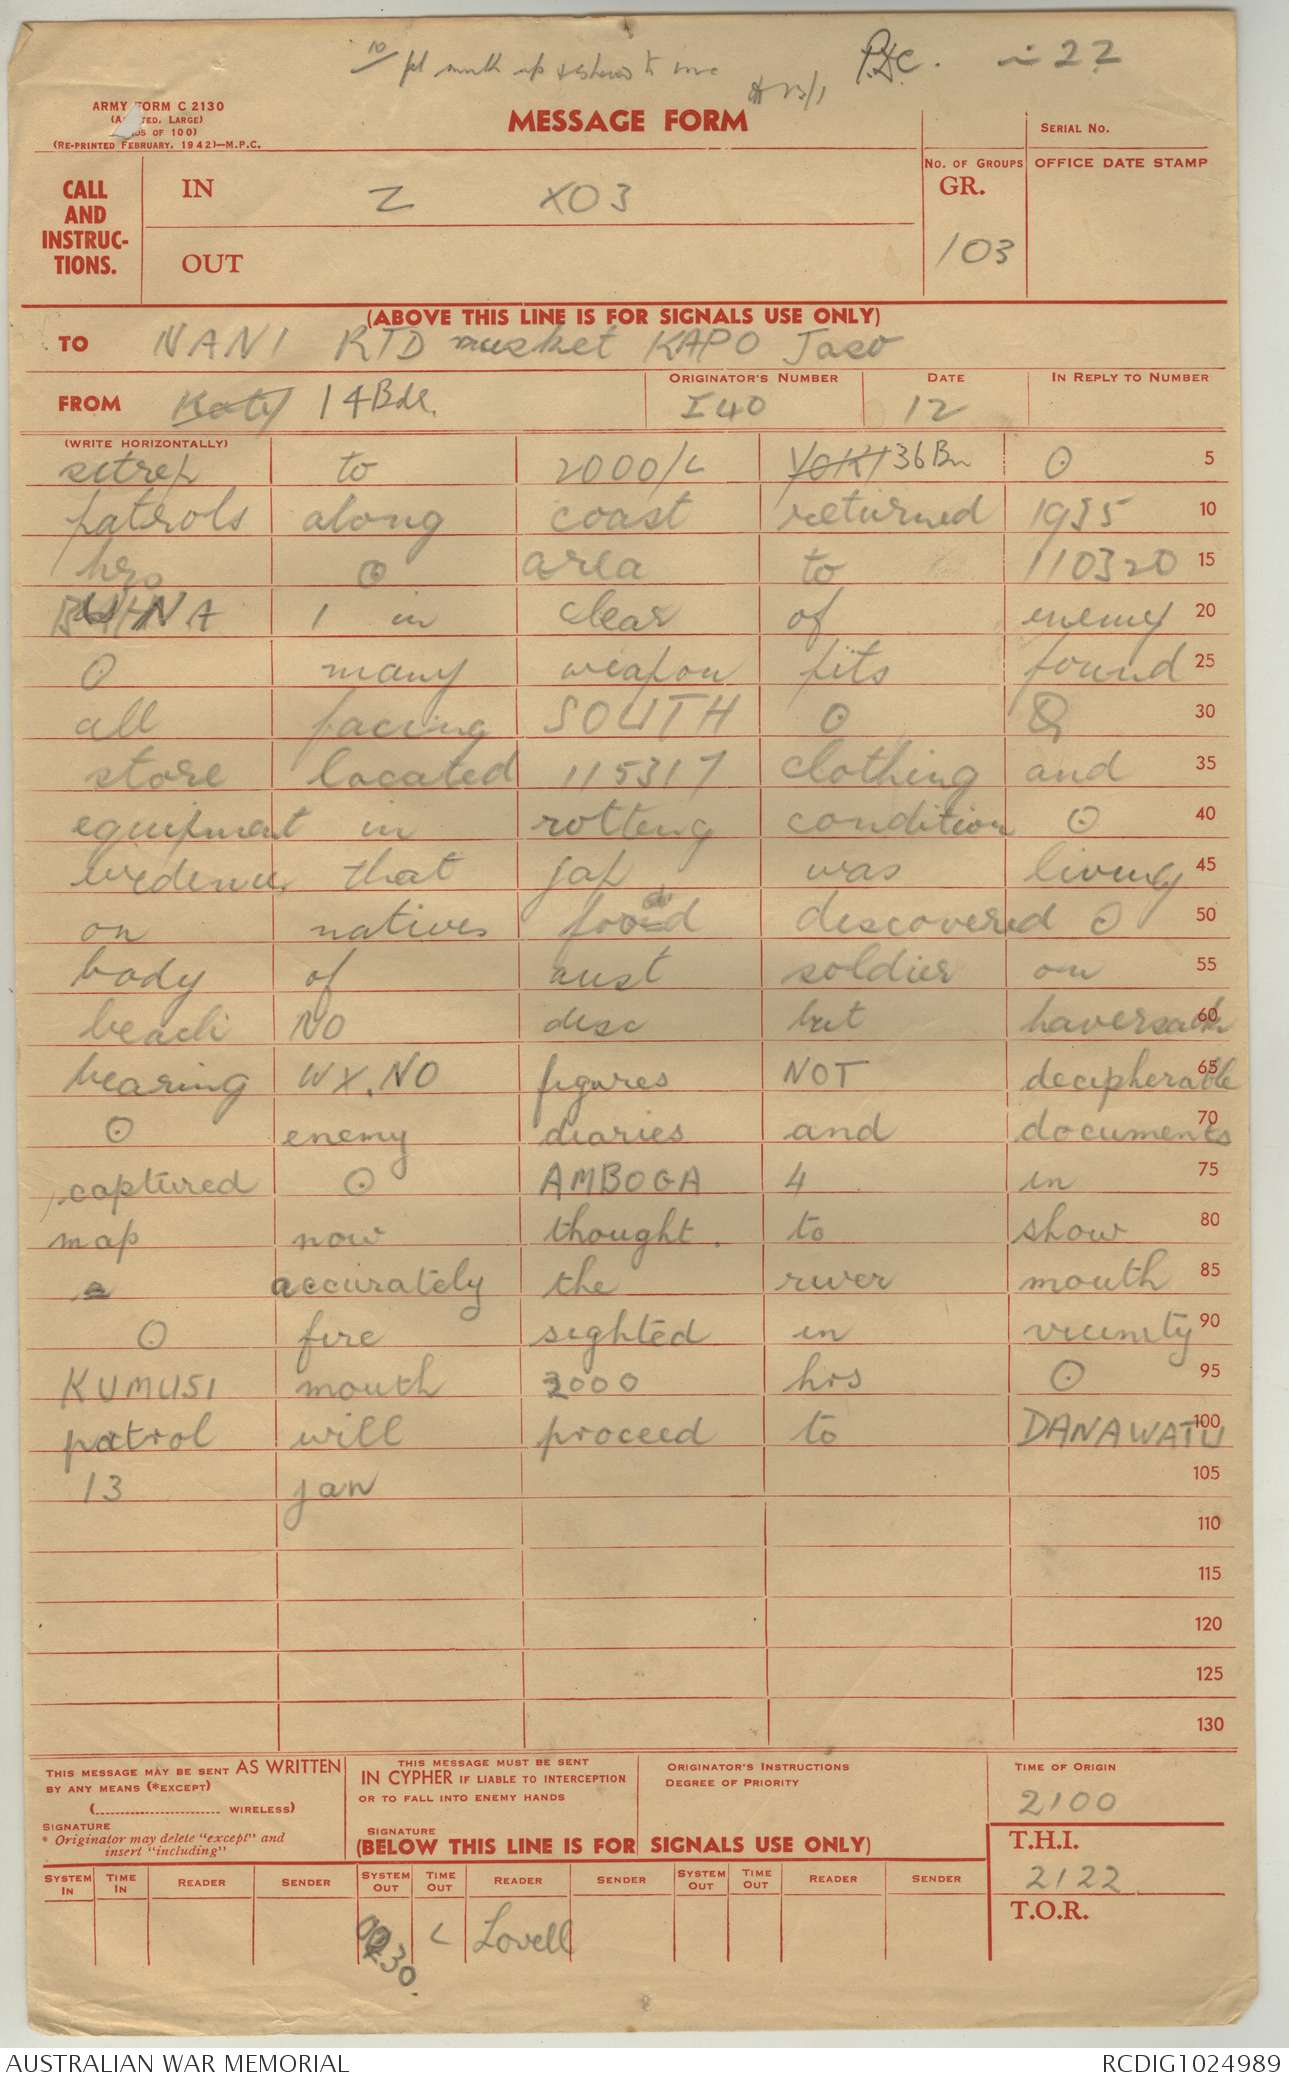 P&C. 22
ARMY FORM C 2130
MESSAGE FORM
(RE-PRINTED FEBRUARY, 1942)—M.P.C.
SERIAL NO.
CALL AND INSTRUC-TIONS.
IN Z XO3
OUT
NO. OF GROUPS
GR.
103
OFFICE DATE STAMP
(ABOVE THIS LINE IS FOR SIGNALS USE ONLY)
TO NANI RTD musket KAPO Jaso
FROM Katy 14 Bde.
ORIGINATOR'S NUMBER I40
DATE 12
IN REPLY TO NUMBER
(WRITE HORIZONTALLY)
sitrep to 2000/L YOKI 36 Bn O 5
patrols along coast returned 1935 10
hrs O area to 110320 15
BUNA 1 in clear of enemy 20
O many weapon pits found 25
all facing SOUTH O Q 30
store located 115317 clothing and 35
equipment in rotting condition O 40
evidence that jap was living 45
on natives food discovered O 50
body of aust soldier on 55
beach NO disc but haversack 60
bearing WX.NO figures NOT decipherable 65
O enemy diaries and documents 70
captured O AMBOGA 4 in 75
map now thought. to show 80
accurately the river mouth 85
O fire sighted in vicinity 90
KUMUSI mouth 2000 hrs O 95
patrol will proceed to DANAWATU 100
13 jan 105
110
115
120
125
130
THIS MESSAGE MAY BE SENT AS WRITTEN
BY ANY MEANS (*EXCEPT)
(........................ WIRELESS)
SIGNATURE
* Originator may delete "except" and
insert "including"
THIS MESSAGE MUST BE SENT
IN CYPHER IF LIABLE TO INTERCEPTION
OR TO FALL INTO ENEMY HANDS
SIGNATURE
ORIGINATOR'S INSTRUCTIONS
DEGREE OF PRIORITY
TIME OF ORIGIN
2100
(BELOW THIS LINE IS FOR SIGNALS USE ONLY)
T.H.I.
2122
T.O.R.
SYSTEM IN TIME IN READER SENDER SYSTEM OUT TIME OUT READER SENDER SYSTEM OUT TIME OUT READER SENDER
L Lovell
AUSTRALIAN WAR MEMORIAL RCDIG1024989